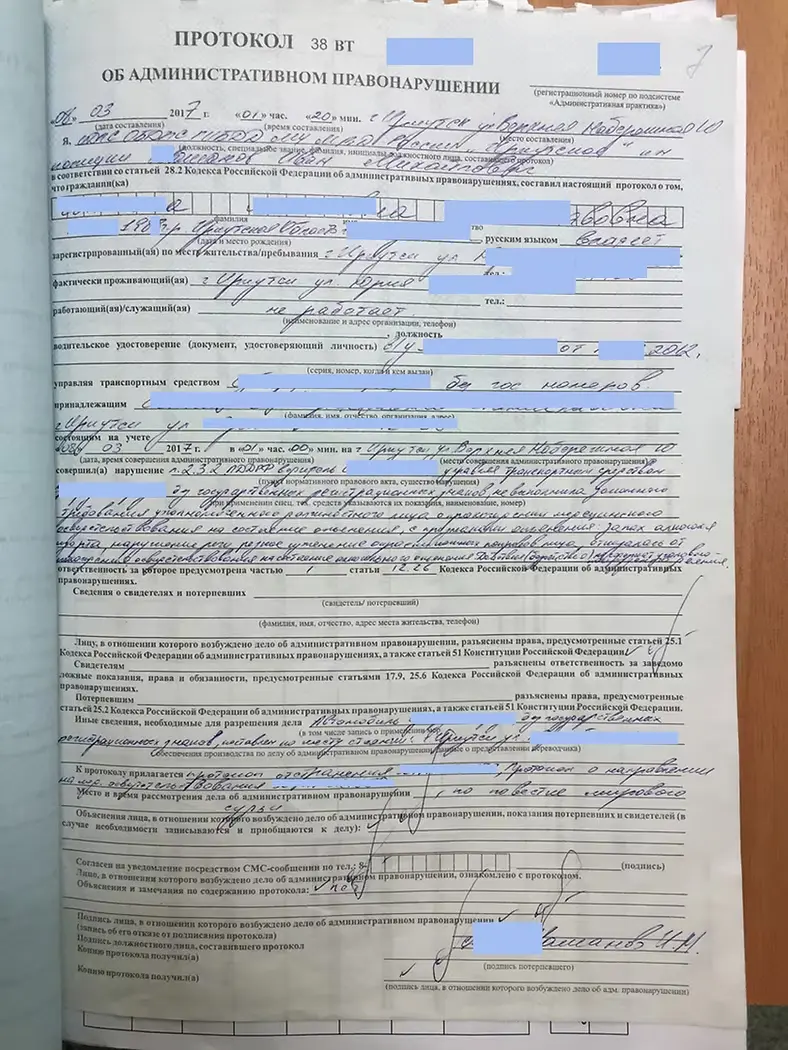 ПРОТОКОЛ 38 ВТ
ОБ АДМИНИСТРАТИВНОМ ПРАВОНАРУШЕНИИ
(регистрационный номер по подсистеме
«Административная практика»)
«08» 03 2017 г. «01» час. «20» мин. г Иркутск ул Верхняя Набережная 10
(дата составления) (время составления) (место составления)
Я,
(должность, специальное звание, фамилия, инициалы должностного лица, составившего протокол)
полиции Иван Михайлович
в соответствии со статьей 28.2 Кодекса Российской Федерации об административных правонарушениях, составил настоящий протокол о том,
что гражданин(ка)
фамилия
Иркутская Область
(дата и место рождения) , русским языком владеет
зарегистрированный(ая) по месту жительства/пребывания г Иркутск ул
тел.:
фактически проживающий(ая) г Иркутск ул. тел.:
работающий(ая)/служащий(ая) не работает
(наименование и адрес организации, телефон)
, должность
водительское удостоверение (документ, удостоверяющий личность) в/у от 2012.
(серия, номер, когда и кем выдан)
управляя транспортным средством без гос номеров.
принадлежащим
(фамилия, имя, отчество, организация, адрес)
г Иркутск ул
состоящим на учете
«08» 03 2017 г. в «01» час. «00» мин. на г Иркутск ул Верхняя Набережная 10
(дата, время совершения административного правонарушения) (место совершения административного правонарушения)
совершил(а) нарушение п. 2.3.2 ПДД РФ водитель управляя транспортным средством
(пункт нормативного правового акта, существо нарушения)
без государственных регистрационных знаков не выполнила законного
(при применении спец. тех. средств указываются их показания, наименование, номер)
требования уполномоченного должностного лица о прохождении медицинского
освидетельствования на состояние опьянения, с признаками опьянения запах алкоголя
изо рта, нарушение речи, резкое изменение окраски кожных покровов лица, отказалась от
ответственность за которое предусмотрена частью 1 статьи 12.26 Кодекса Российской Федерации об административных
правонарушениях.
Сведения о свидетелях и потерпевших
(свидетель/ потерпевший)
(фамилия, имя, отчество, адрес места жительства, телефон)
Лицу, в отношении которого возбуждено дело об административном правонарушении, разъяснены права, предусмотренные статьей 25.1
Кодекса Российской Федерации об административных правонарушениях, а также статьей 51 Конституции Российской Федерации
Свидетелям разъяснены ответственность за заведомо
ложные показания, права и обязанности, предусмотренные статьями 17.9, 25.6 Кодекса Российской Федерации об административных
правонарушениях.
Потерпевшим разъяснены права, предусмотренные
статьей 25.2 Кодекса Российской Федерации об административных правонарушениях, а также статьей 51 Конституции Российской Федерации.
Иные сведения, необходимые для разрешения дела Автомобиль без государственных
(в том числе запись о применении мер
регистрационных знаков, оставлен на месту стоянки г Иркутск ул.
обеспечения производства по делу об административном правонарушении, о предоставлении переводчика)
К протоколу прилагается протокол отстранения , Протокол о направлении
на мед. освидетельствования
Место и время рассмотрения дела об административном правонарушении , по повестке мирового
судьи
Объяснения лица, в отношении которого возбуждено дело об административном правонарушении, показания потерпевших и свидетелей (в
случае необходимости записываются и приобщаются к делу):
Согласен на уведомление посредством СМС-сообщении по тел.: 8- (подпись)
Лицо, в отношении которого возбуждено дело об административном правонарушении, ознакомлено с протоколом.
Объяснения и замечания по содержанию протокола:
Подпись лица, в отношении которого возбуждено дело об административном правонарушении
(запись об его отказе от подписания протокола)
Подпись должностного лица, составившего протокол
Копию протокола получил(а)
(подпись потерпевшего)
Копию протокола получил(а)
(подпись лица, в отношении которого возбуждено дело об адм. правонарушении)